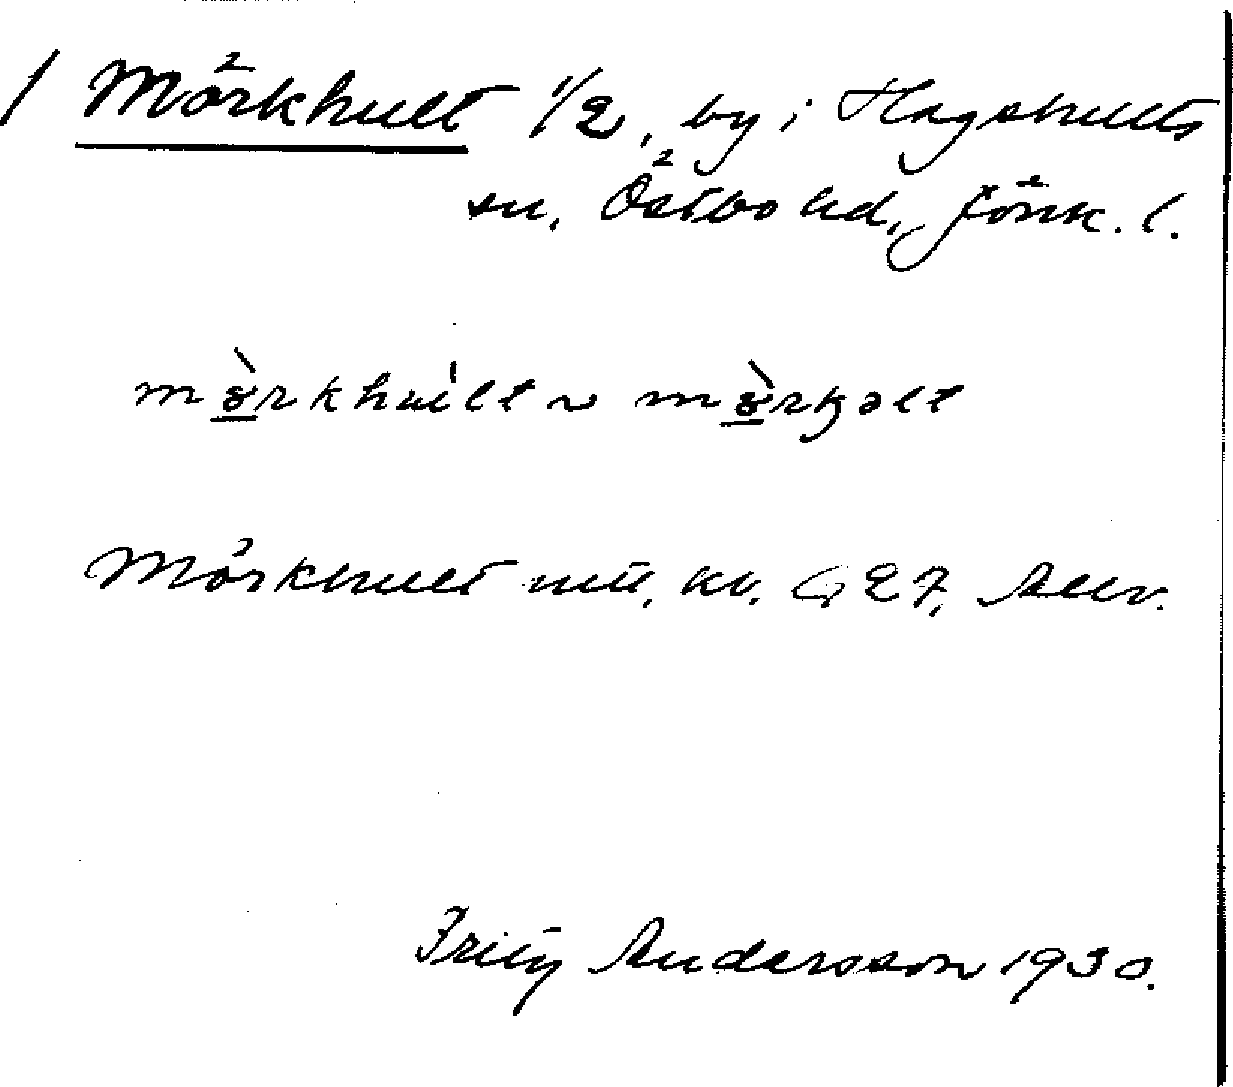 / Mörkhult 1/2, by i Hagshults
sn, Östbo hd, Jönk. l.
mò̱rkhuˈlt ~ mò̱rkəlt
Mörkhult
Fritz Andersson 1930.